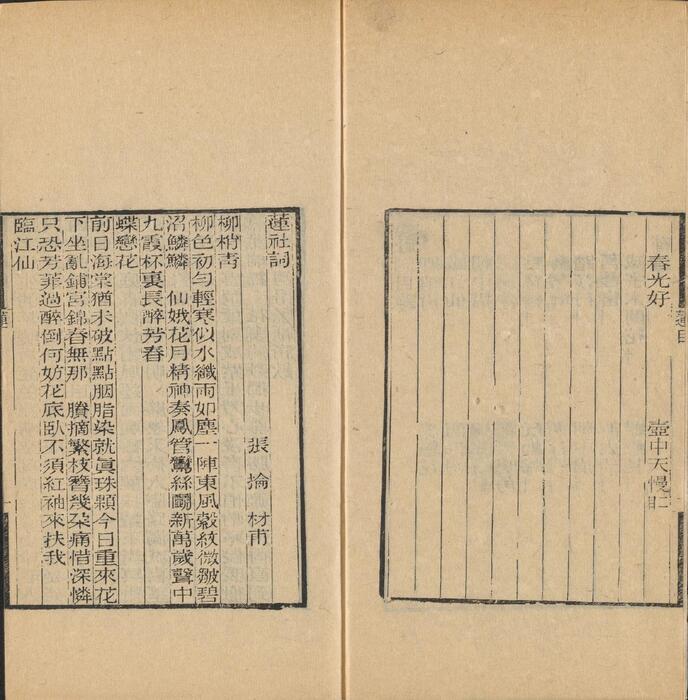 蓮目
春光好 壺中天慢
蓮社詞
張掄 材甫
柳梢青
柳色初勻輕寒似水纖雨如塵一陣東風縠紋微皺碧
沼鱗鱗 仙娥花月精神奏鳳管鸞絲鬭新萬歲聲中
九霞杯裏長醉芳春
蝶戀花
前日海棠猶未破點點胭脂染就眞珠顆今日重來花
下坐亂鋪宮錦春無那 賸摘繁枝簪幾朶痛惜深憐
只恐芳菲過醉倒何妨花底臥不須紅袖來扶我
臨江仙
蓮